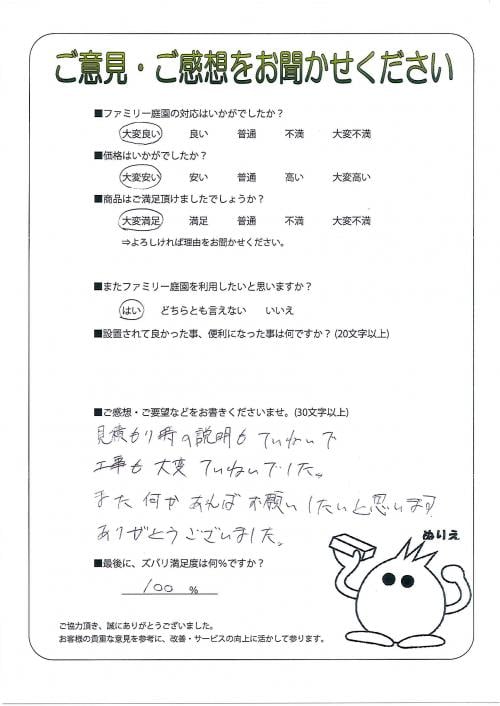 ご意見・ご感想をお聞かせください
■ファミリー庭園の対応はいかがでしたか？
大変良い 良い 普通 不満 大変不満
■価格はいかがでしたか？
大変安い 安い 普通 高い 大変高い
■商品はご満足頂けましたでしょうか？
大変満足 満足 普通 不満 大変不満
⇒よろしければ理由をお聞かせください。
■またファミリー庭園を利用したいと思いますか？
はい どちらとも言えない いいえ
■設置されて良かった事、便利になった事は何ですか？(20文字以上)
■ご感想・ご要望などをお書きくださいませ。(30文字以上)
見積もり時の説明も ていねいで
工事も 大変 ていねいでした。
また 何か あれば お願いしたいと思います
ありがとうございました。
ぬりえ
■最後に、ズバリ満足度は何%ですか？
100 %
ご協力頂き、誠にありがとうございました。
お客様の貴重な意見を参考に、改善・サービスの向上に活かして参ります。